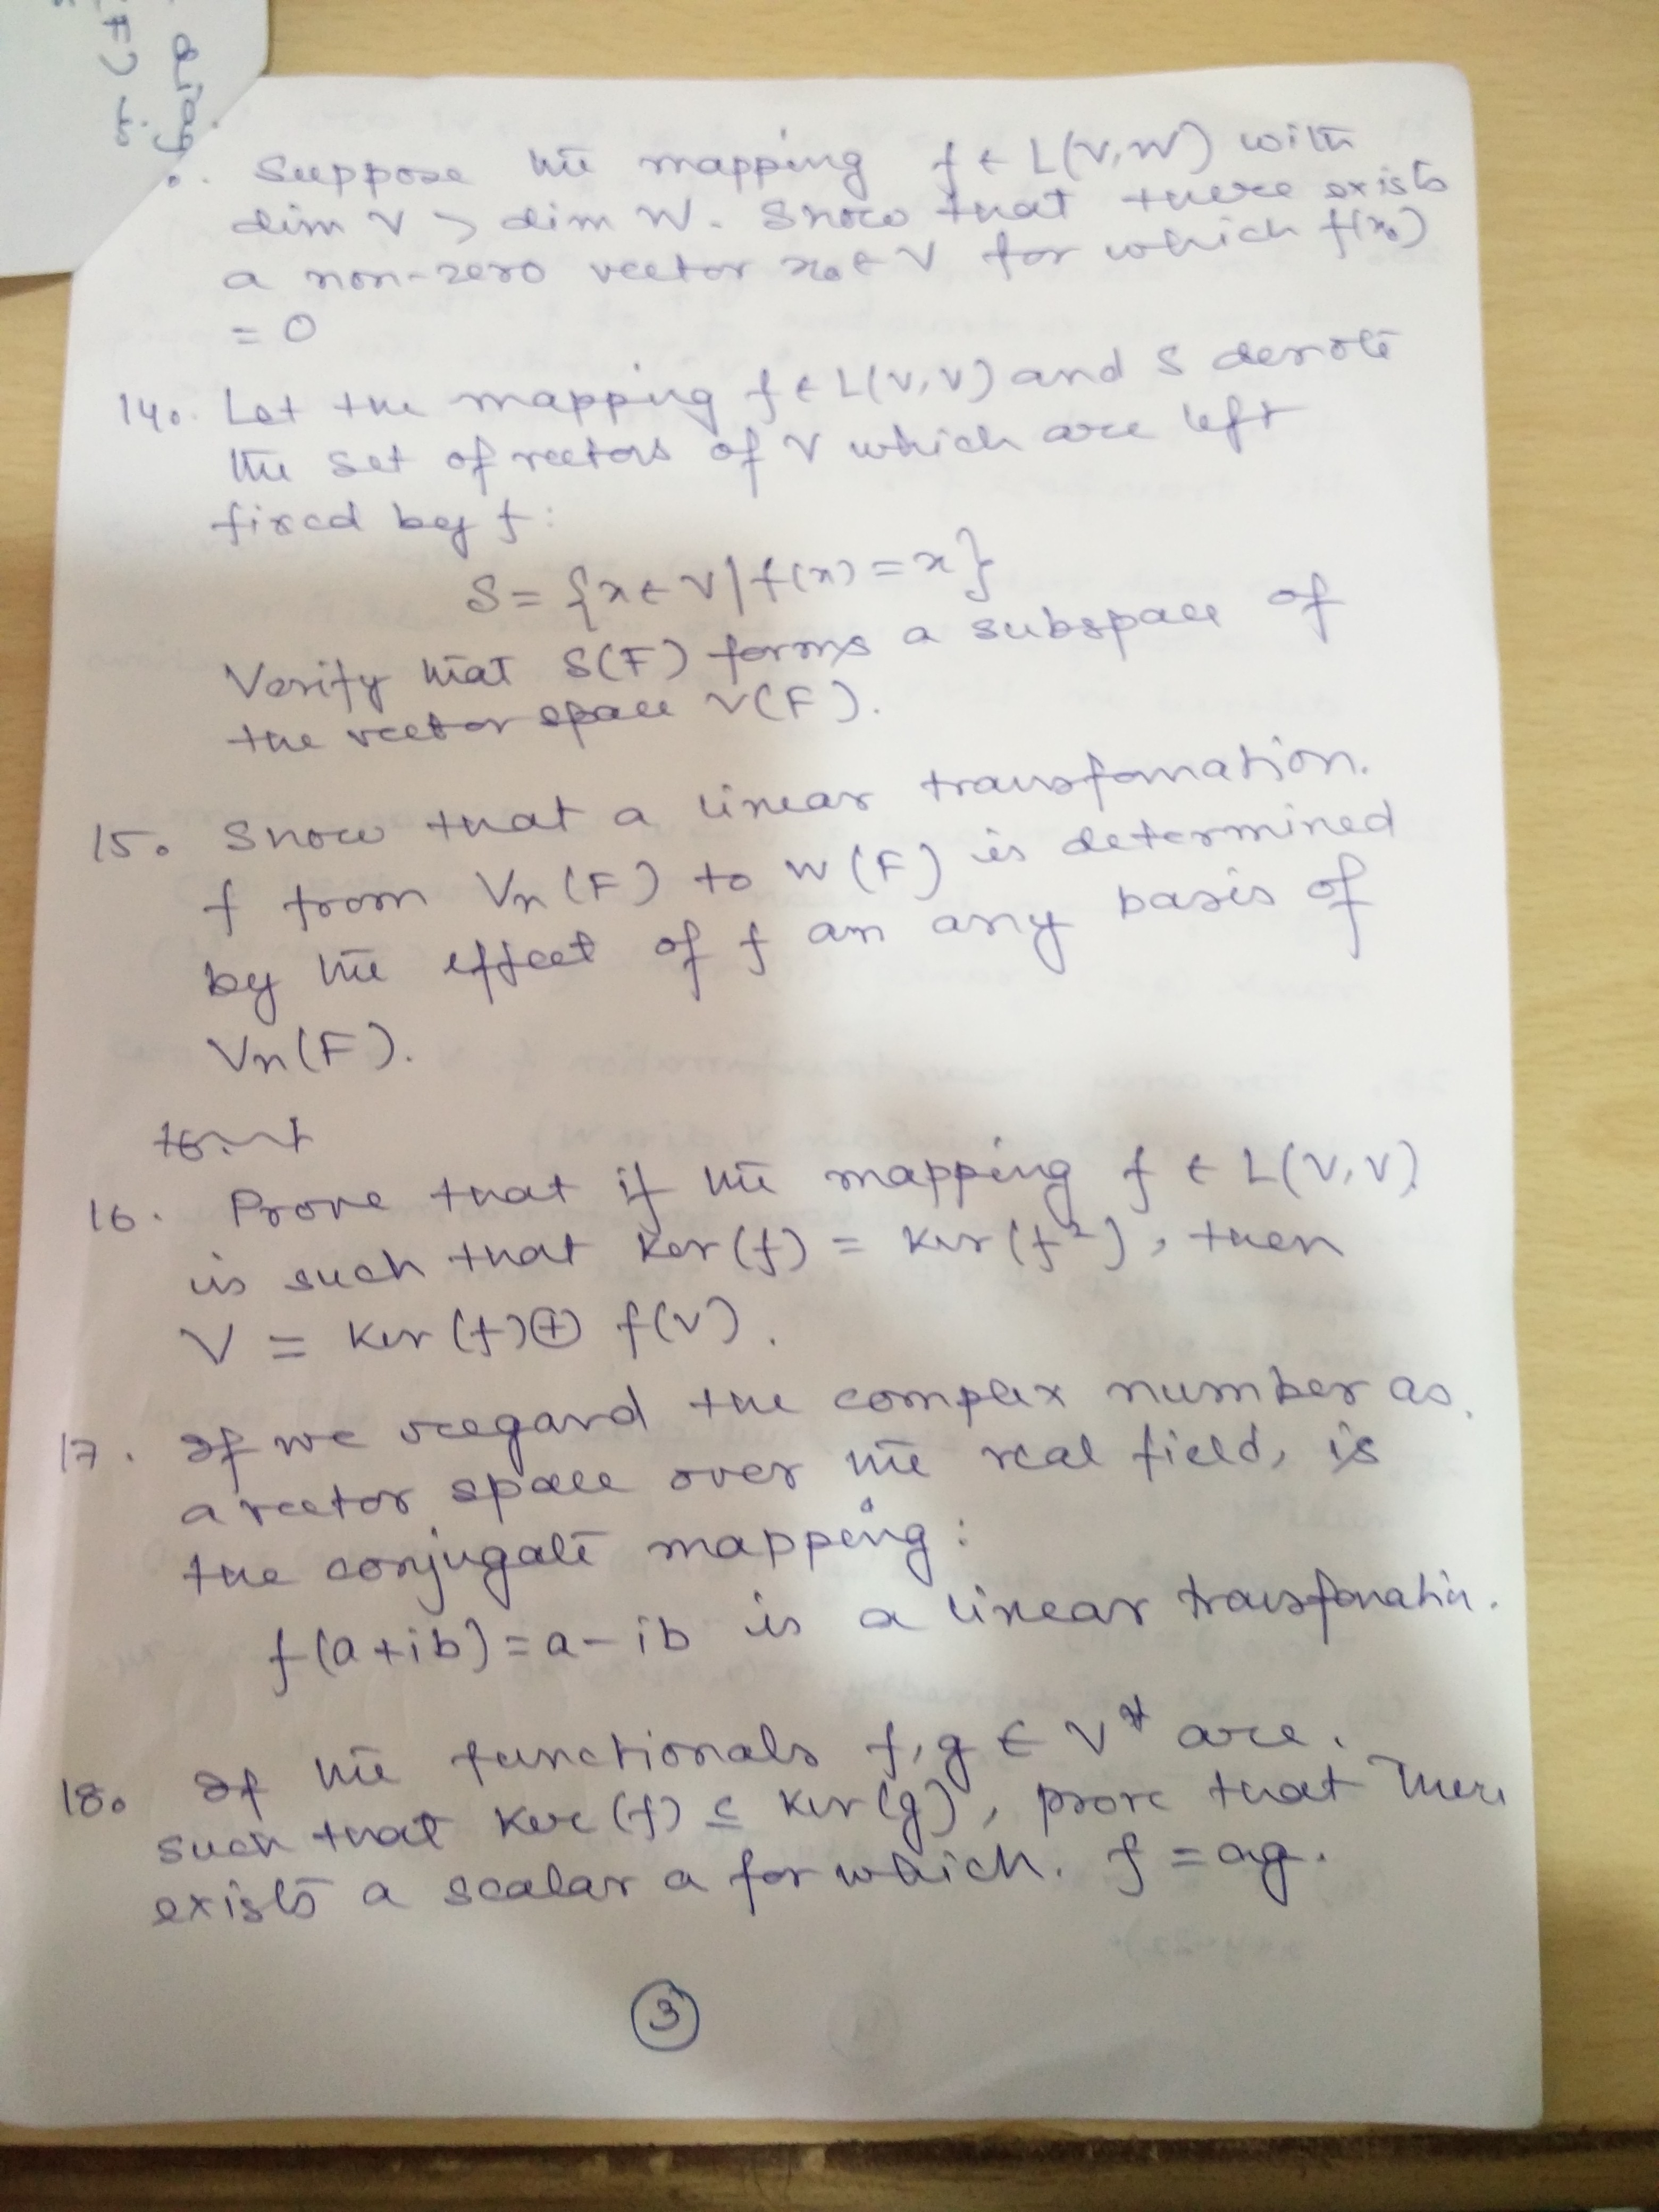 diag
(F) is
Suppose the mapping f ∈ L(V,W) with
dim V > dim W. Show that there exists
a non-zero vector x₀ ∈ V for which f(x₀)
= 0
14. Let the mapping f ∈ L(V,V) and S denote
the set of vectors of V which are left
fixed by f:
S = {x ∈ V | f(x) = x}
Verify that S(F) forms a subspace of
the vector space V(F).
15. Show that a linear transfomation.
f from Vn(F) to W(F) is determined
by the effect of f an any basis of
Vn(F).
16. Prove that if the mapping f ∈ L(V,V)
is such that Ker(f) = Ker(f²), then
V = Ker(f) ⊕ f(V).
17. If we regard the complex number as.
a vector space over the real field, is
the conjugate mapping:
f(a+ib) = a-ib is a linear transfomatin.
18. If the functionals f,g ∈ V* are.
such that Ker(f) ⊆ Ker(g), prove that There
exists a scalar a for which. f = ag.
3